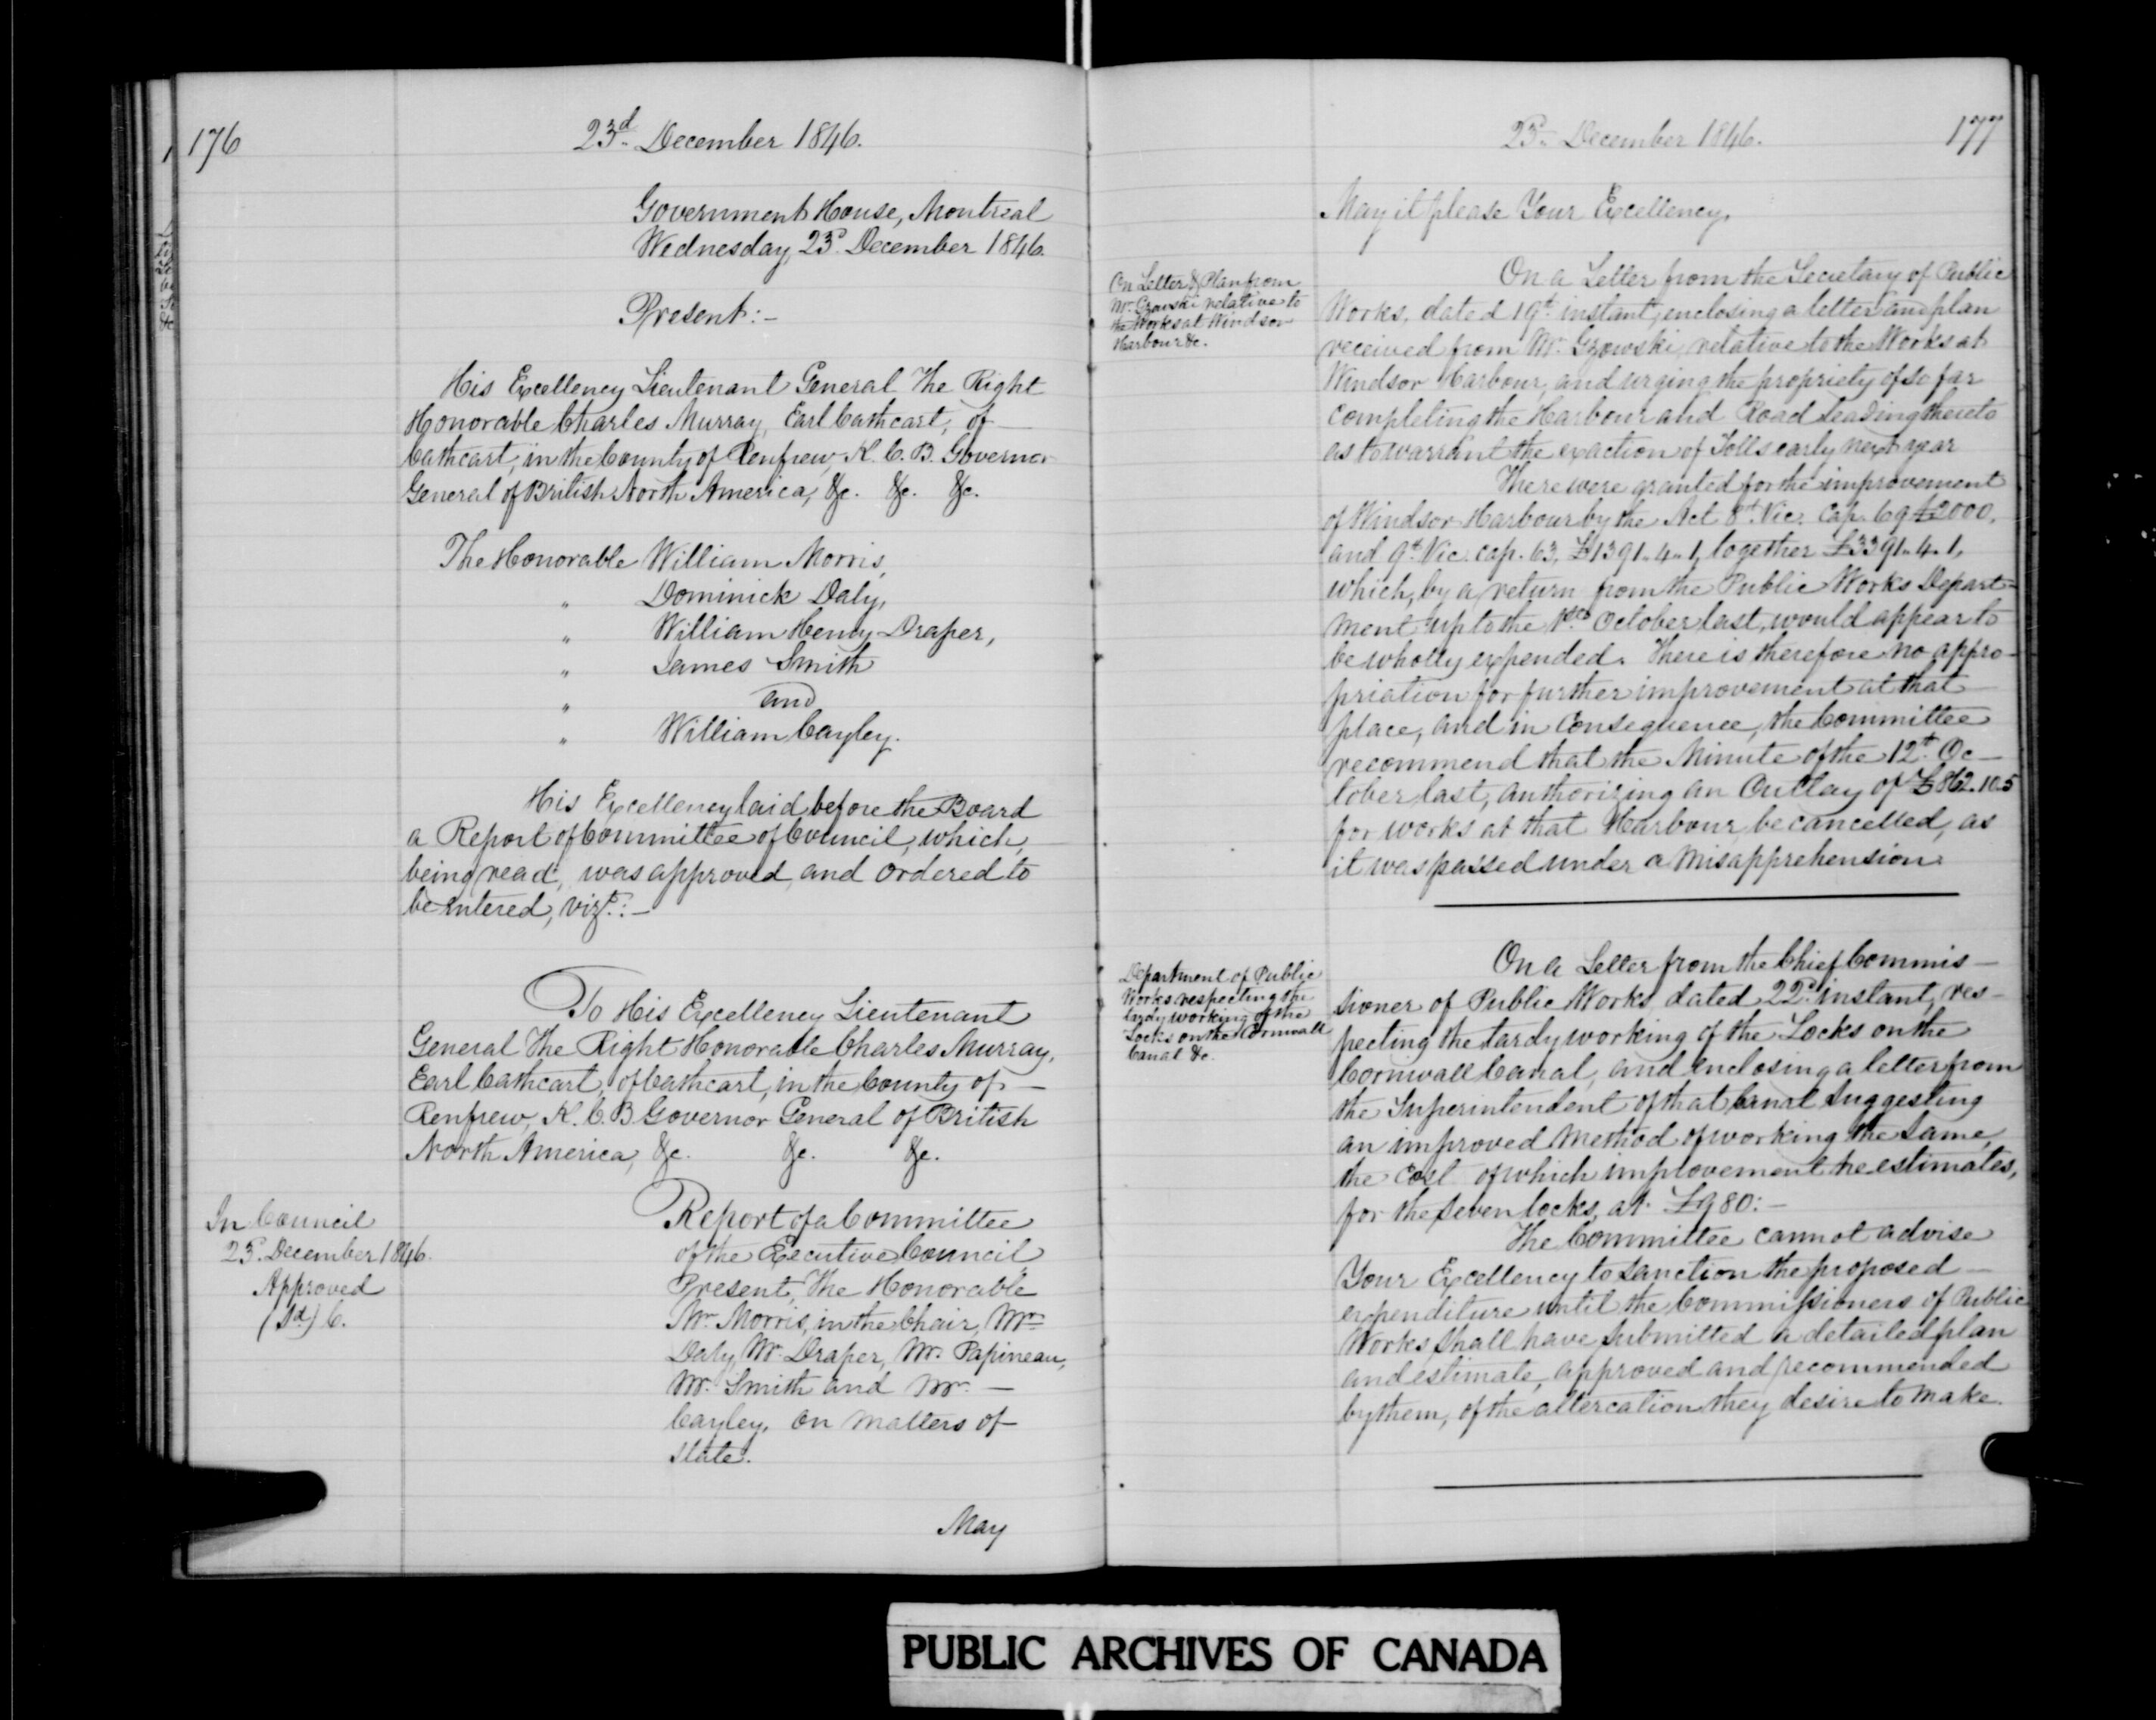 176
23d December 1846.
Government House, Montreal
Wednesday, 23d December 1846.
Present:-
His Excellency Lieutenant General The Right
Honorable Charles Murray, Earl Cathcart, of
Cathcart, in the County of Renfrew, K. C. B. Governor
General of British North America, &c. &c. &c.
The Honorable William Morris,
" Dominick Daly,
" William Henry Draper,
" James Smith
" and
" William Cayley.
His Excellency laid before the Board
a Report of Committee of Council, which,
being read, was approved and ordered to
be entered, vizt:-
To His Excellency Lieutenant
General The Right Honorable Charles Murray,
Earl Cathcart, of Cathcart, in the County of
Renfrew, K. C. B. Governor General of British
North America, &c. &c. &c.
In Council
23d. December 1846.
Approved
(Sd) C.
Report of a Committee
of the Executive Council
Present, The Honorable
Mr. Morris, in the Chair, Mr.
Daly, Mr. Draper, Mr. Papineau,
Mr. Smith and Mr. —
Cayley, on matters of
State.
May
23d. December 1846.
177
May it please Your Excellency,
On Letter & Plan from
Mr. Gzowski relative to
the Works at Windsor
Harbour &c.
On a Letter from the Secretary of Public
Works, dated 19th instant, enclosing a letter and plan
received from Mr. Gzowski, relative to the Works at
Windsor Harbour, and urging the propriety of so far
completing the Harbour and Road leading thereto
as to warrant the exaction of Tolls early next year
There were granted for the improvement
of Windsor Harbour by the Act 8th. Vic. Cap. 69 £2000,
and 9th Vic. cap. 63, £1391..4..1, together £3391..4..1,
which, by a return from the Public Works Depart-
ment up to the 1st October last, would appear to
be wholly expended. There is therefore no appro-
priation for further improvement at that
place, and in consequence, the Committee
recommend that the Minute of the 12th Oc-
tober last, authorizing an Outlay of £862.10.5
for works at that Harbour, be cancelled, as
it was passed under a misapprehension.
Department of Public
Works respecting the
tardy working of the
Locks on the Cornwall
Canal &c.
On a Letter from the Chief Commis-
sioner of Public Works, dated 22d. instant, res-
pecting the tardy working of the Locks on the
Cornwall Canal, and enclosing a letter from
the Superintendent of that Canal suggesting
an improved method of working the same,
the cost of which improvement he estimates,
for the seven locks, at £980:-
The Committee cannot advise
Your Excellency to sanction the proposed —
expenditure until the Commissioners of Public
Works shall have submitted a detailed plan
and estimate, approved and recommended
by them, of the altercation they desire to make.
PUBLIC ARCHIVES OF CANADA